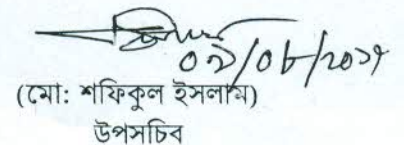 ০৯/০৮/২০১৭
(মো: শফিকুল ইসলাম)
উপসচিব